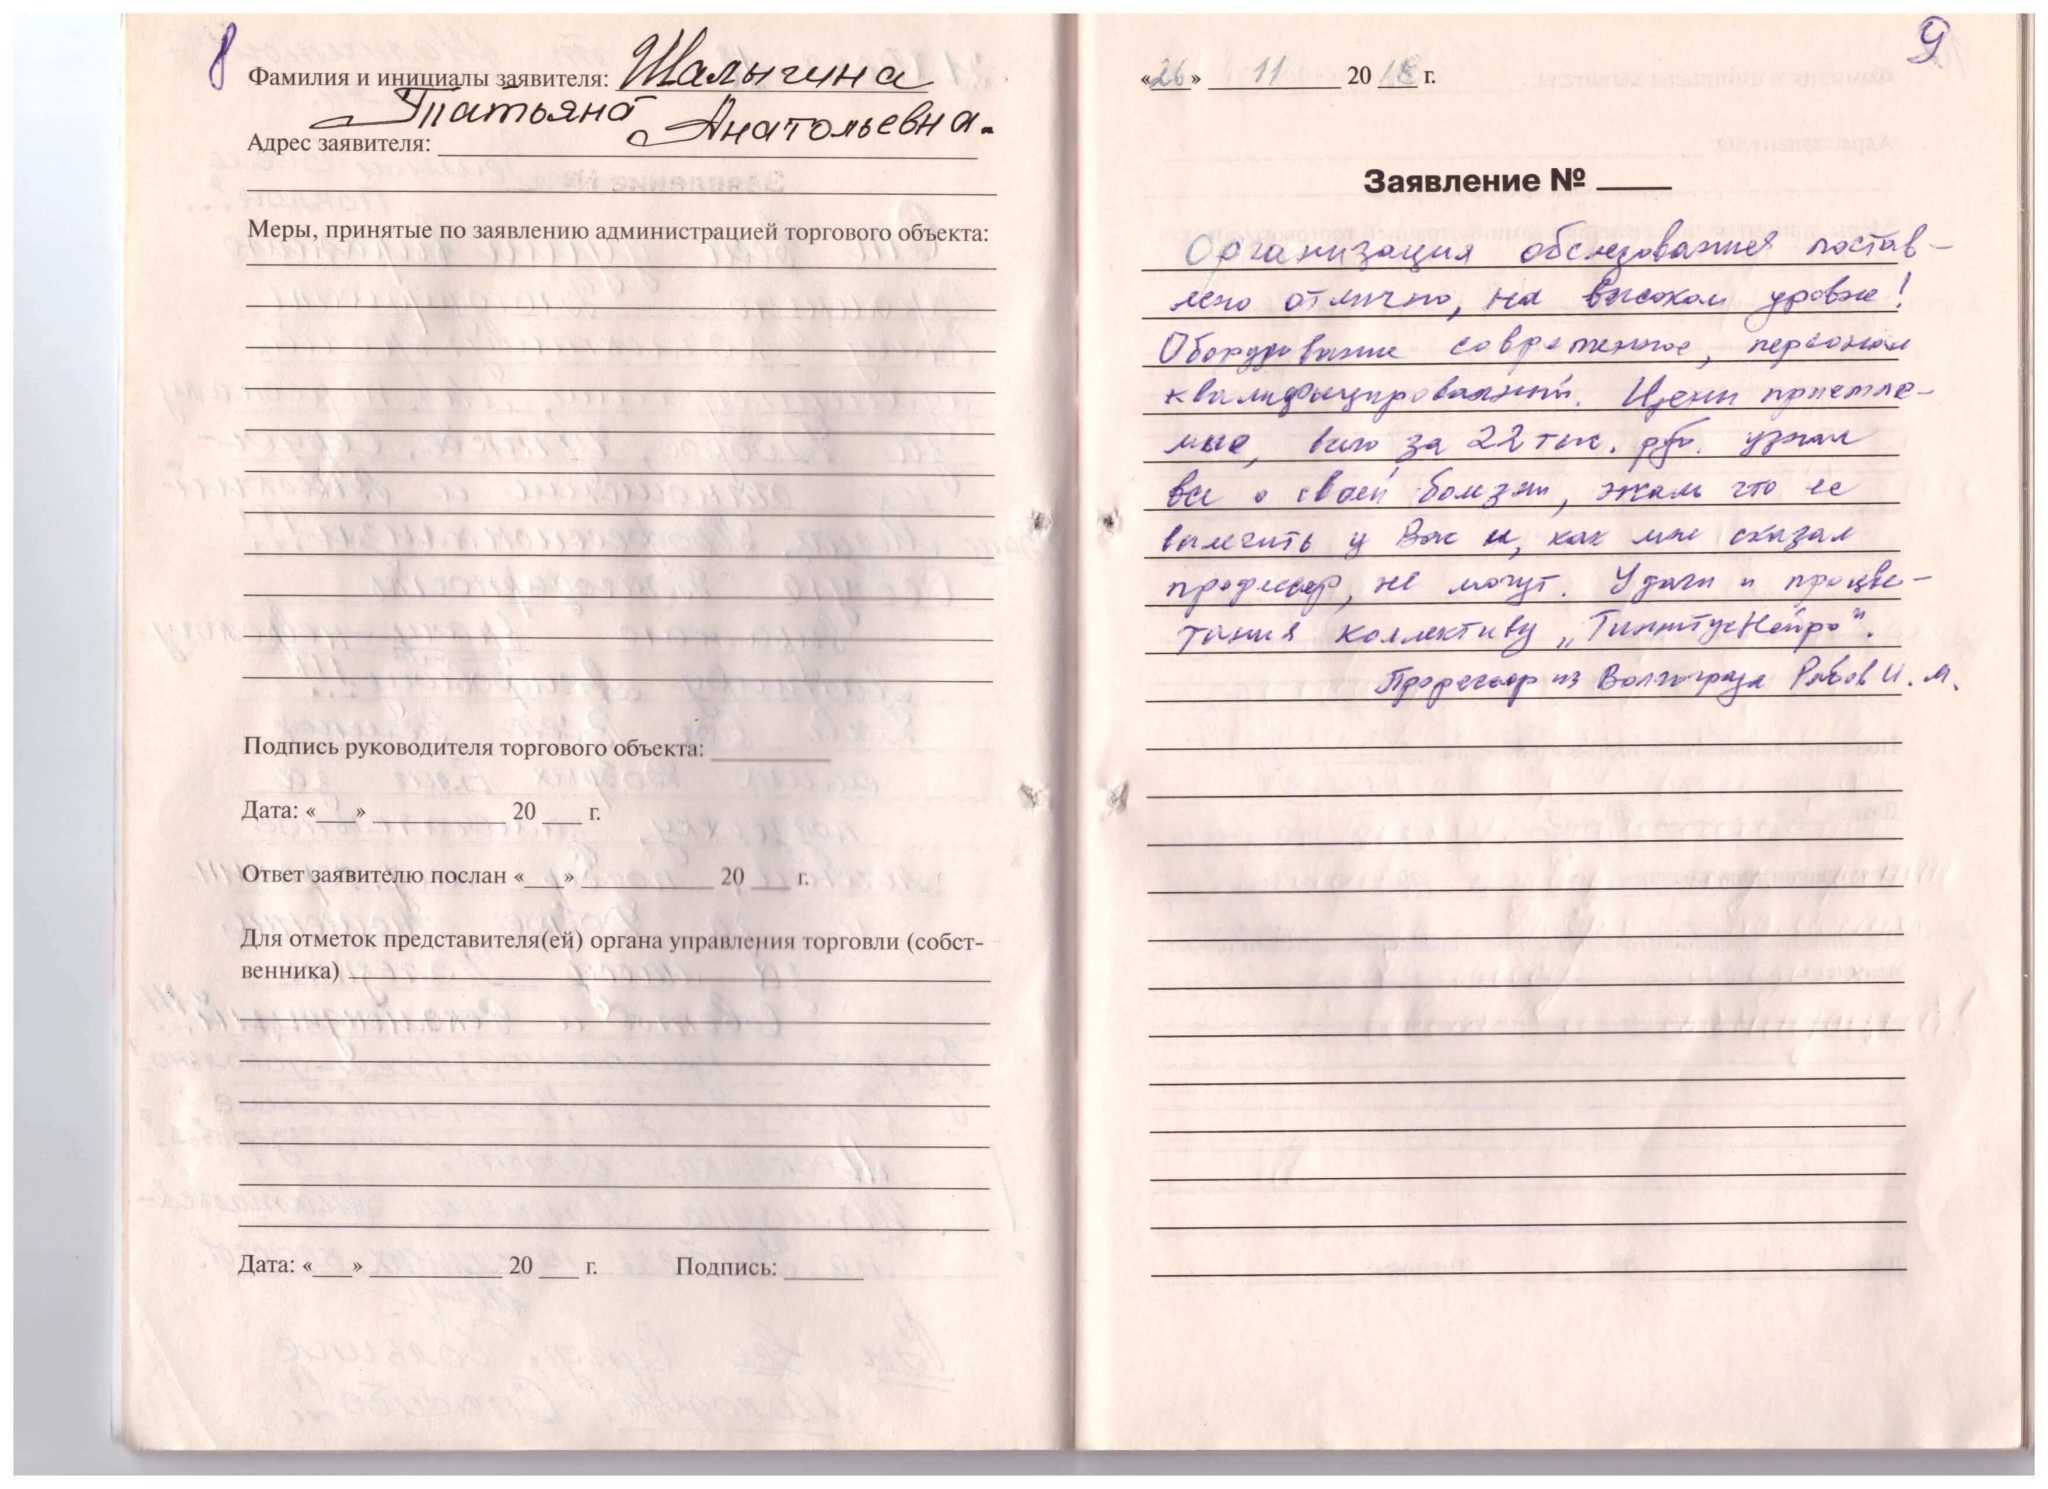 8
Фамилия и инициалы заявителя: Шалыгина
Татьяна Анатольевна.
Адрес заявителя:
Меры, принятые по заявлению администрацией торгового объекта:
Подпись руководителя торгового объекта:
Дата: «___» __________ 20 ___ г.
Ответ заявителю послан «___» __________ 20 ___ г.
Для отметок представителя(ей) органа управления торговли (собст-
венника)
Дата: «___» __________ 20 ___ г. Подпись: ______
9
«26» 11 2018 г.
Заявление № ____
Организация обследования постав-
лено отлично, на высоком уровне!
Оборудование современное, персонал
квалифицированный. Цены приемле-
мые, всего за 22 тыс. руб. узнал
все о своей болезни, жаль что ее
вылечить у Вас и, как мне сказал
профессор, не могут. Удачи и процве-
тания коллективу „ТиннитусНейро".
Профессор из Волгограда Рябов И. М.